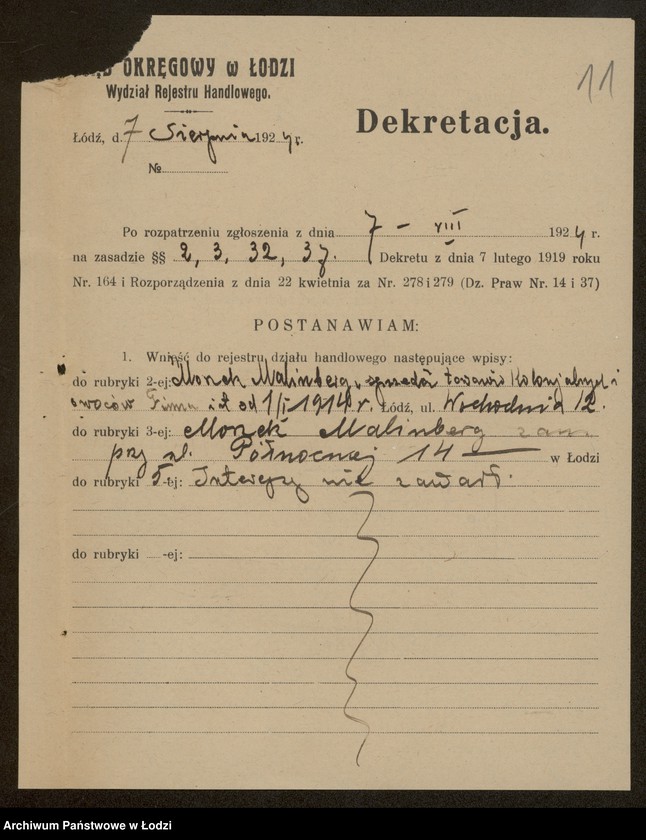 OKRĘGOWY w ŁODZI
Wydział Rejestru Handlowego.
11
Łódź, d. 7 Sierpnia 1924 r.
Dekretacja.
№
Po rozpatrzeniu zgłoszenia z dnia 7 – VIII 1924 r.
na zasadzie §§ 2, 3, 32, 37. Dekretu z dnia 7 lutego 1919 roku
Nr. 164 i Rozporządzenia z dnia 22 kwietnia za Nr. 278 i 279 (Dz. Praw Nr. 14 i 37)
POSTANAWIAM:
1. Wnieść do rejestru działu handlowego następujące wpisy:
do rubryki 2-ej: Moszek Malinberg, sprzedaż towarów kolonjalnych i
owoców Firma ist od 1/I 1914 r. Łódź, ul. Wschodnia 12.
do rubryki 3-ej: Moszek Malinberg zam.
przy ul. Północnej 14 — w Łodzi
do rubryki 5-ej: Intercyzy nie zawarł.
do rubryki -ej:
Archiwum Państwowe w Łodzi